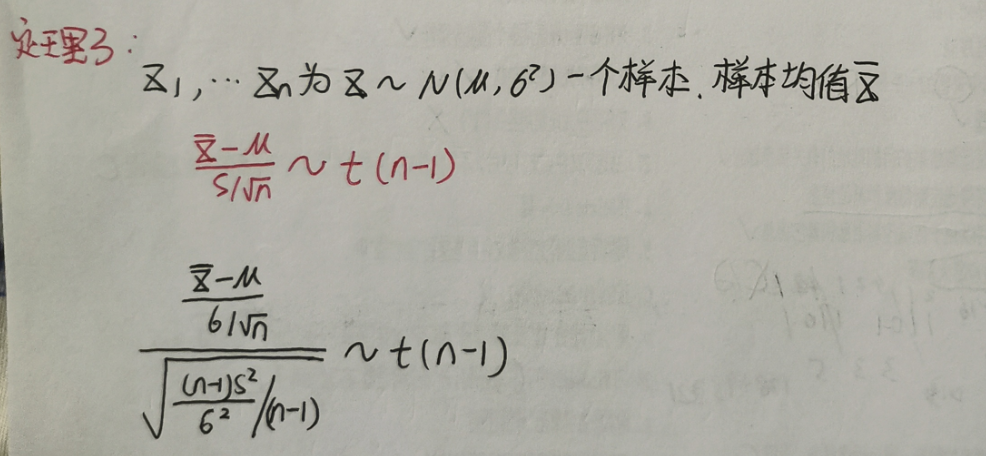 定理3:
X1,…Xn为X~N(μ,σ²)一个样本.样本均值X̄
(X̄-μ)/(S/√n) ~ t(n-1)
((X̄-μ)/(σ/√n))/√((n-1)S²/σ²/(n-1)) ~ t(n-1)